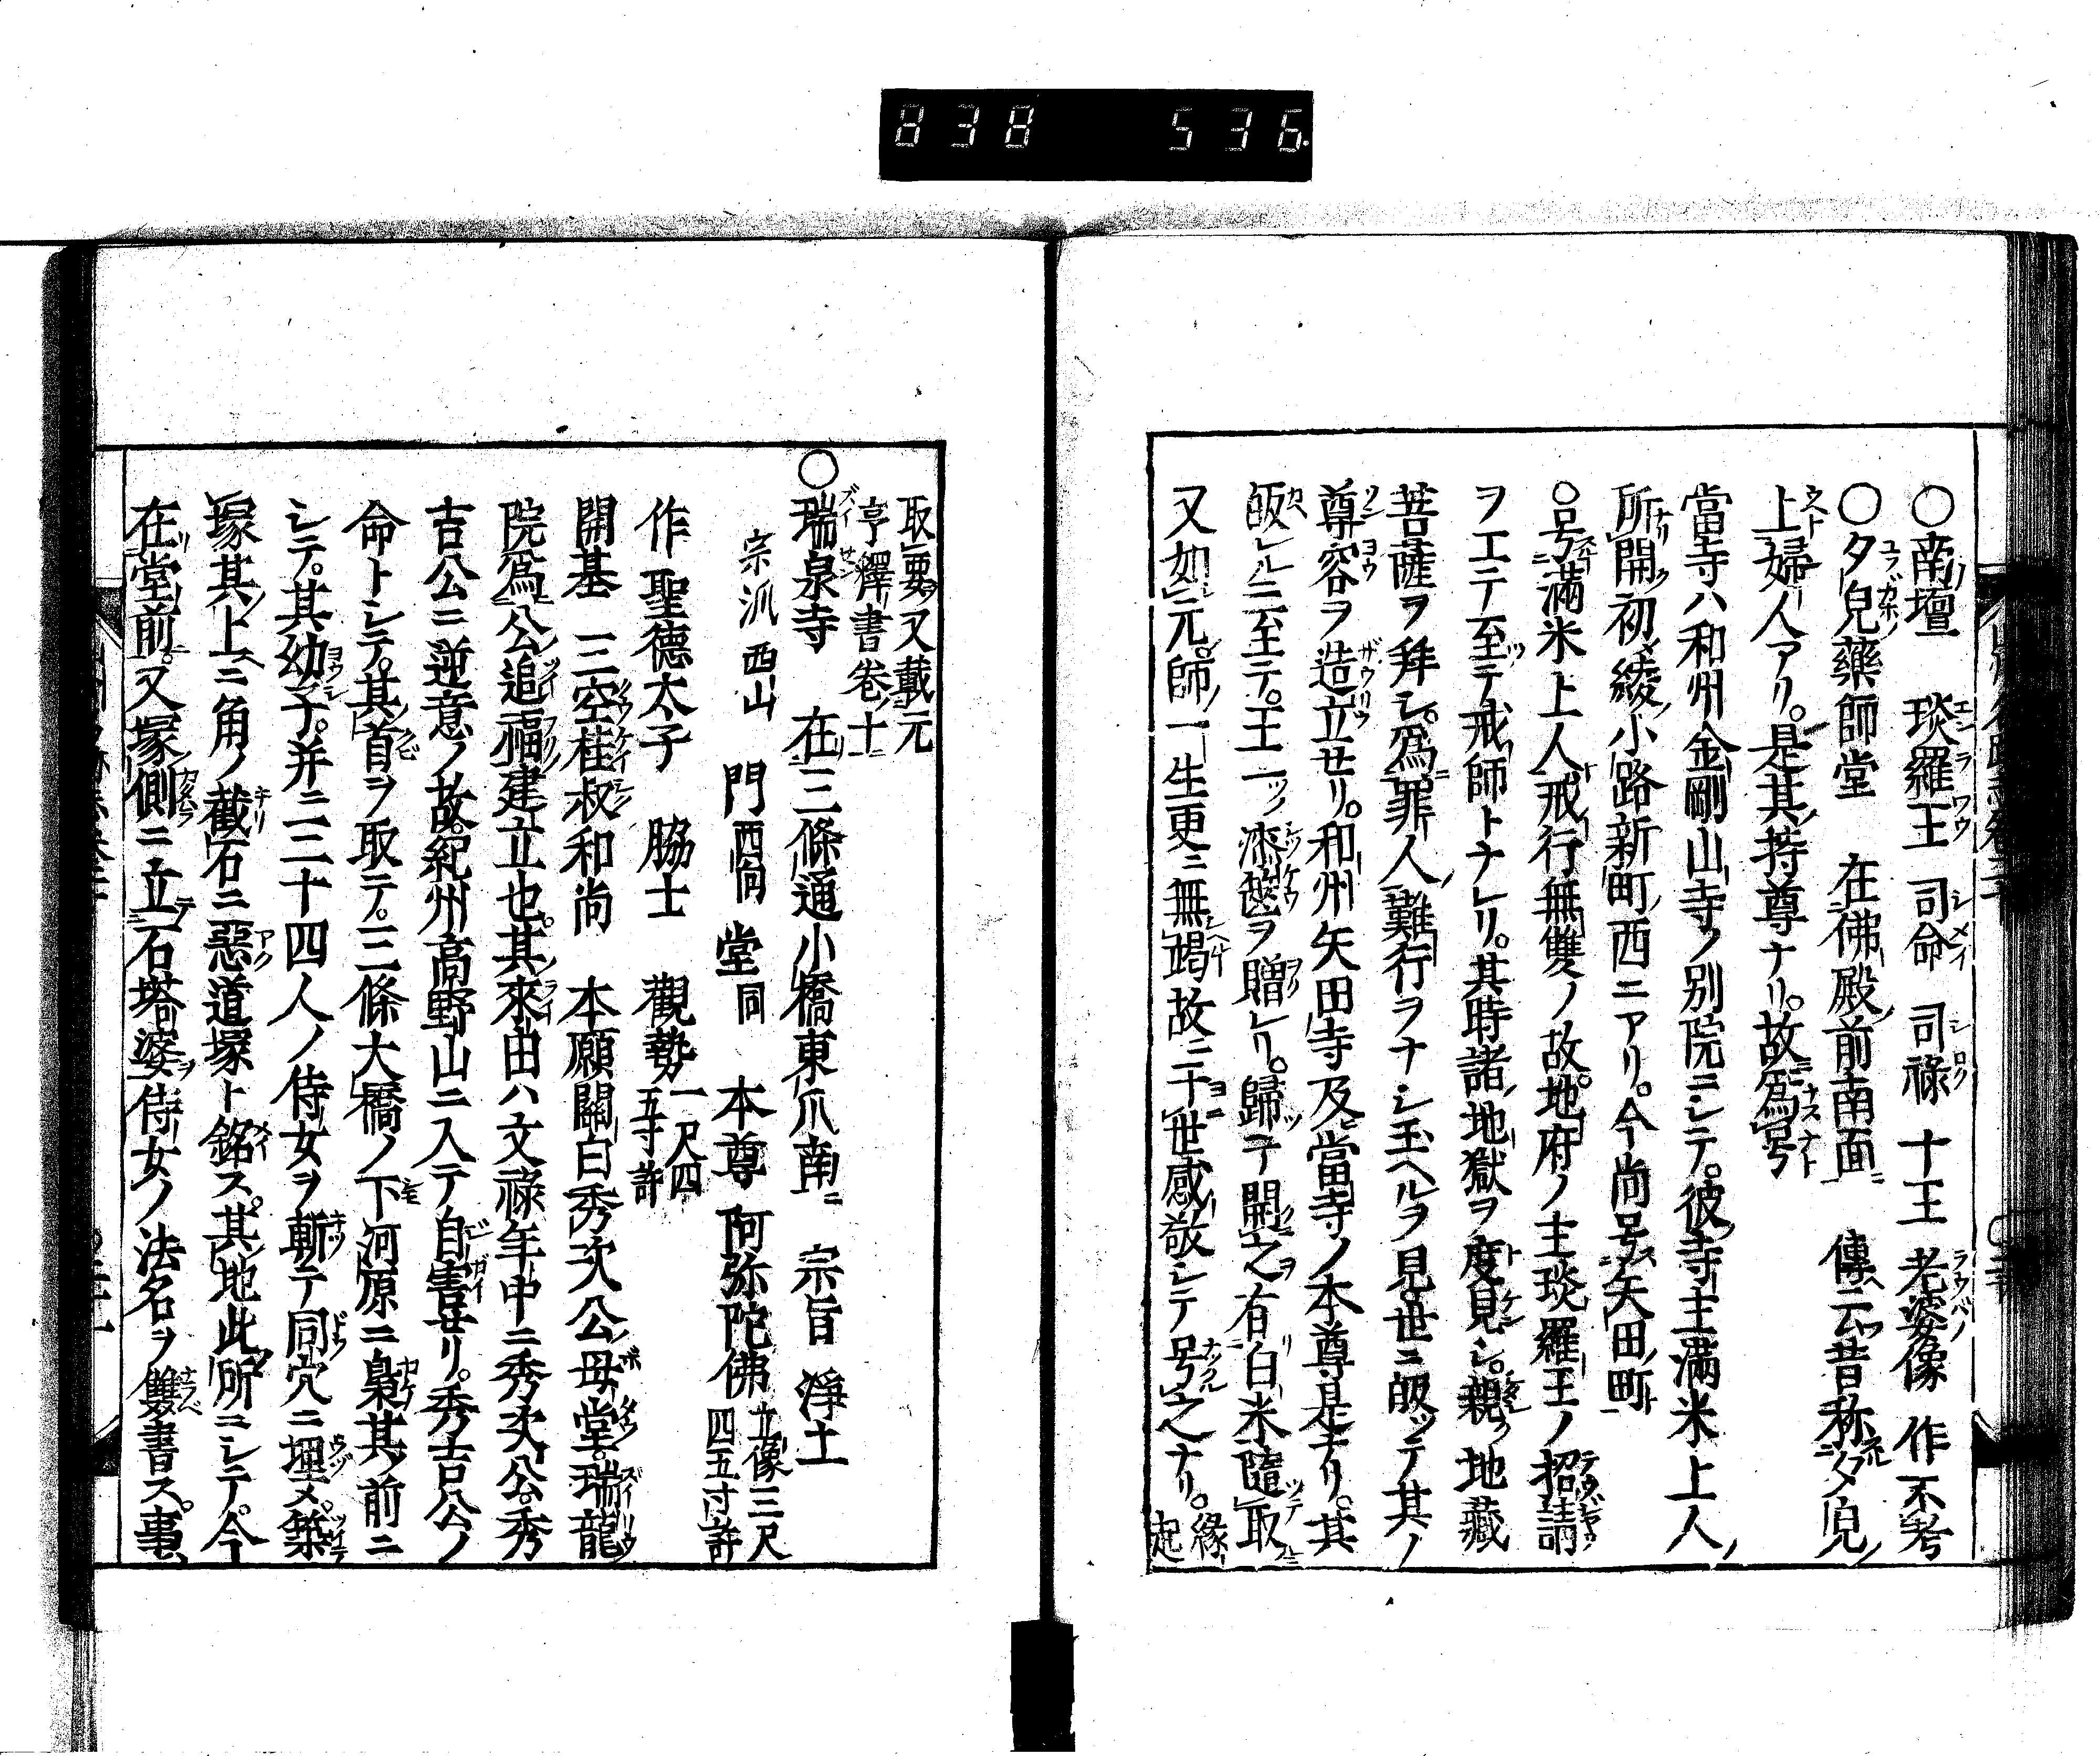 838 536
○南壇 琰羅王 司命 司祿 十王 老婆像 作不考
○夕皃藥師堂 在佛殿前南面 傳云昔称夕皃
上婦人アリ。是其持尊ナリ。故爲号
當寺ハ和州金剛山寺ノ別院ニシテ。彼寺主滿米上人
所開初綾小路新町西ニアリ。今尚号矢田町
○号滿米上人戒行無雙ノ故地府ノ主琰羅王ノ招請
ヲエテ至テ戒師トナレリ。其時諸地獄ヲ度見シ。親ク地藏
菩薩ヲ拜シ。爲罪人難行ヲナシ玉ヘルヲ見世ニ皈ツテ其ノ
尊容ヲ造立セリ。和州矢田寺及當寺ノ本尊是ナリ。其
皈ルニ至テ。王一ツノ漆篋ヲ贈レリ。歸テ開之有白米隨取
又如元。師一生更ニ無竭故ニ于世感敬シテ号之ナリ。緣起
取要又載元
亨釋書卷十
○瑞泉寺 在三條通小橋東爪南 宗旨 淨土
宗派西山 門西向 堂同 本尊 阿弥陀佛立像三尺四五寸許
作 聖德太子 脇士 觀勢一尺四五寸許
開基 三空桂叔和尚 本願關白秀次公母堂。瑞龍
院爲公追福建立也。其來由ハ文祿年中ニ秀次公。秀
吉公ニ逆意ノ故。紀州高野山ニ入テ自害セリ。秀吉公ノ
命トシテ。其首ヲ取テ。三條大橋ノ下河原ニ梟其前ニ
シテ。其幼子。并ニ二十四人ノ侍女ヲ斬テ同穴ニ埋メ。築
塚其上ニ角ノ截石ニ惡道塚ト銘ス。其地此所ニシテ。今
在堂前。又塚側ニ立石塔婆侍女ノ法名ヲ雙書ス。事